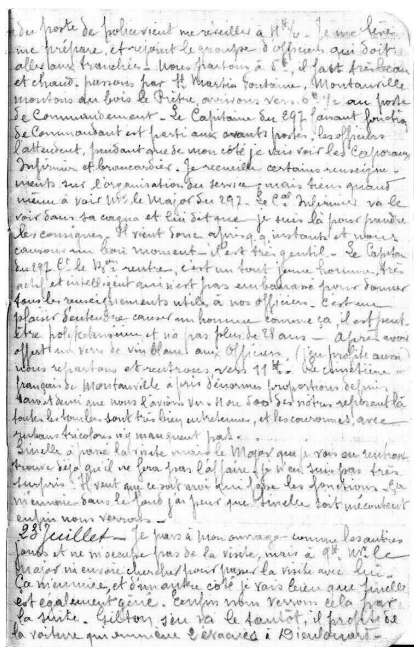 du poste de police vient me réveiller à 4h ½. Je me lève
me prépare, et rejoint le groupe d'officiers qui doit
aller aux tranchées. Nous partons à 5h, il fait très beau
et chaud. passons par St Martin Fontaine, Montauville
montons au bois le Prêtre, arrivons vers 6h ½ au poste
de Commandement. Le Capitaine du 297 faisant fonction
de Commandant est parti aux avants postes, les officiers
l'attendent, pendant que de mon coté je vais voir les Caporaux
Infirmier et brancardier. Je recueille certains renseigne-
ments sur l'organisation du service, mais tiens quand
même à voir Mr le Major du 297. Le Cal Infirmier va le
voir dans sa cagna et lui dit que je suis là pour prendre
les consignes. Il vient donc après q.q. instants et nous
causons un bon moment. il est très gentil. Le Capitaine
du 297 rentre, c'est un tout jeune homme, très
actif et intelligent qui n'est pas embarrassé pour donner
tous les renseignements utiles à nos officiers. C'est un
plaisir d'entendre causer un homme comme ça, il est peut
être polytechnicien et n'a pas plus de 28 ans. Après avoir
offert un verre de vin blanc aux Officiers, (j'en profite aussi)
nous repartons et rentrons vers 11h. Le cimetière
français de Montauville a pris d'énormes proportions depuis
que nous l'avions vu 4 ou 500 des nôtres reposent là
toutes les tombes sont très bien entretenues, et les couronnes, avec
rubans tricolores n'y manquent pas.
Sinelle a passé la visite mais le Major que je vais en rentrant
trouve déjà qu'il ne fera pas l'affaire. Je n'en suis pas très
surpris. Il veut que ce soit moi qui fasse les fonctions. Ça
m'ennuie dans le fond j'ai peur que Sinelle soit mécontent
enfin nous verrons.
23 Juillet. Je pars à mon ouvrage comme les autres
jours et ne m'occupe pas de la visite, mais à 9h Mr le
Major m'envoie chercher pour passer la visite avec lui.
Ça m'ennuie, et d'un autre côté je vois bien que Sinelle
est également gêné. Enfin nous verrons cela par
la suite. Gilton s'en va le tantôt, il profite de
la voiture qui emmène 2 évacués à Dieulouard.